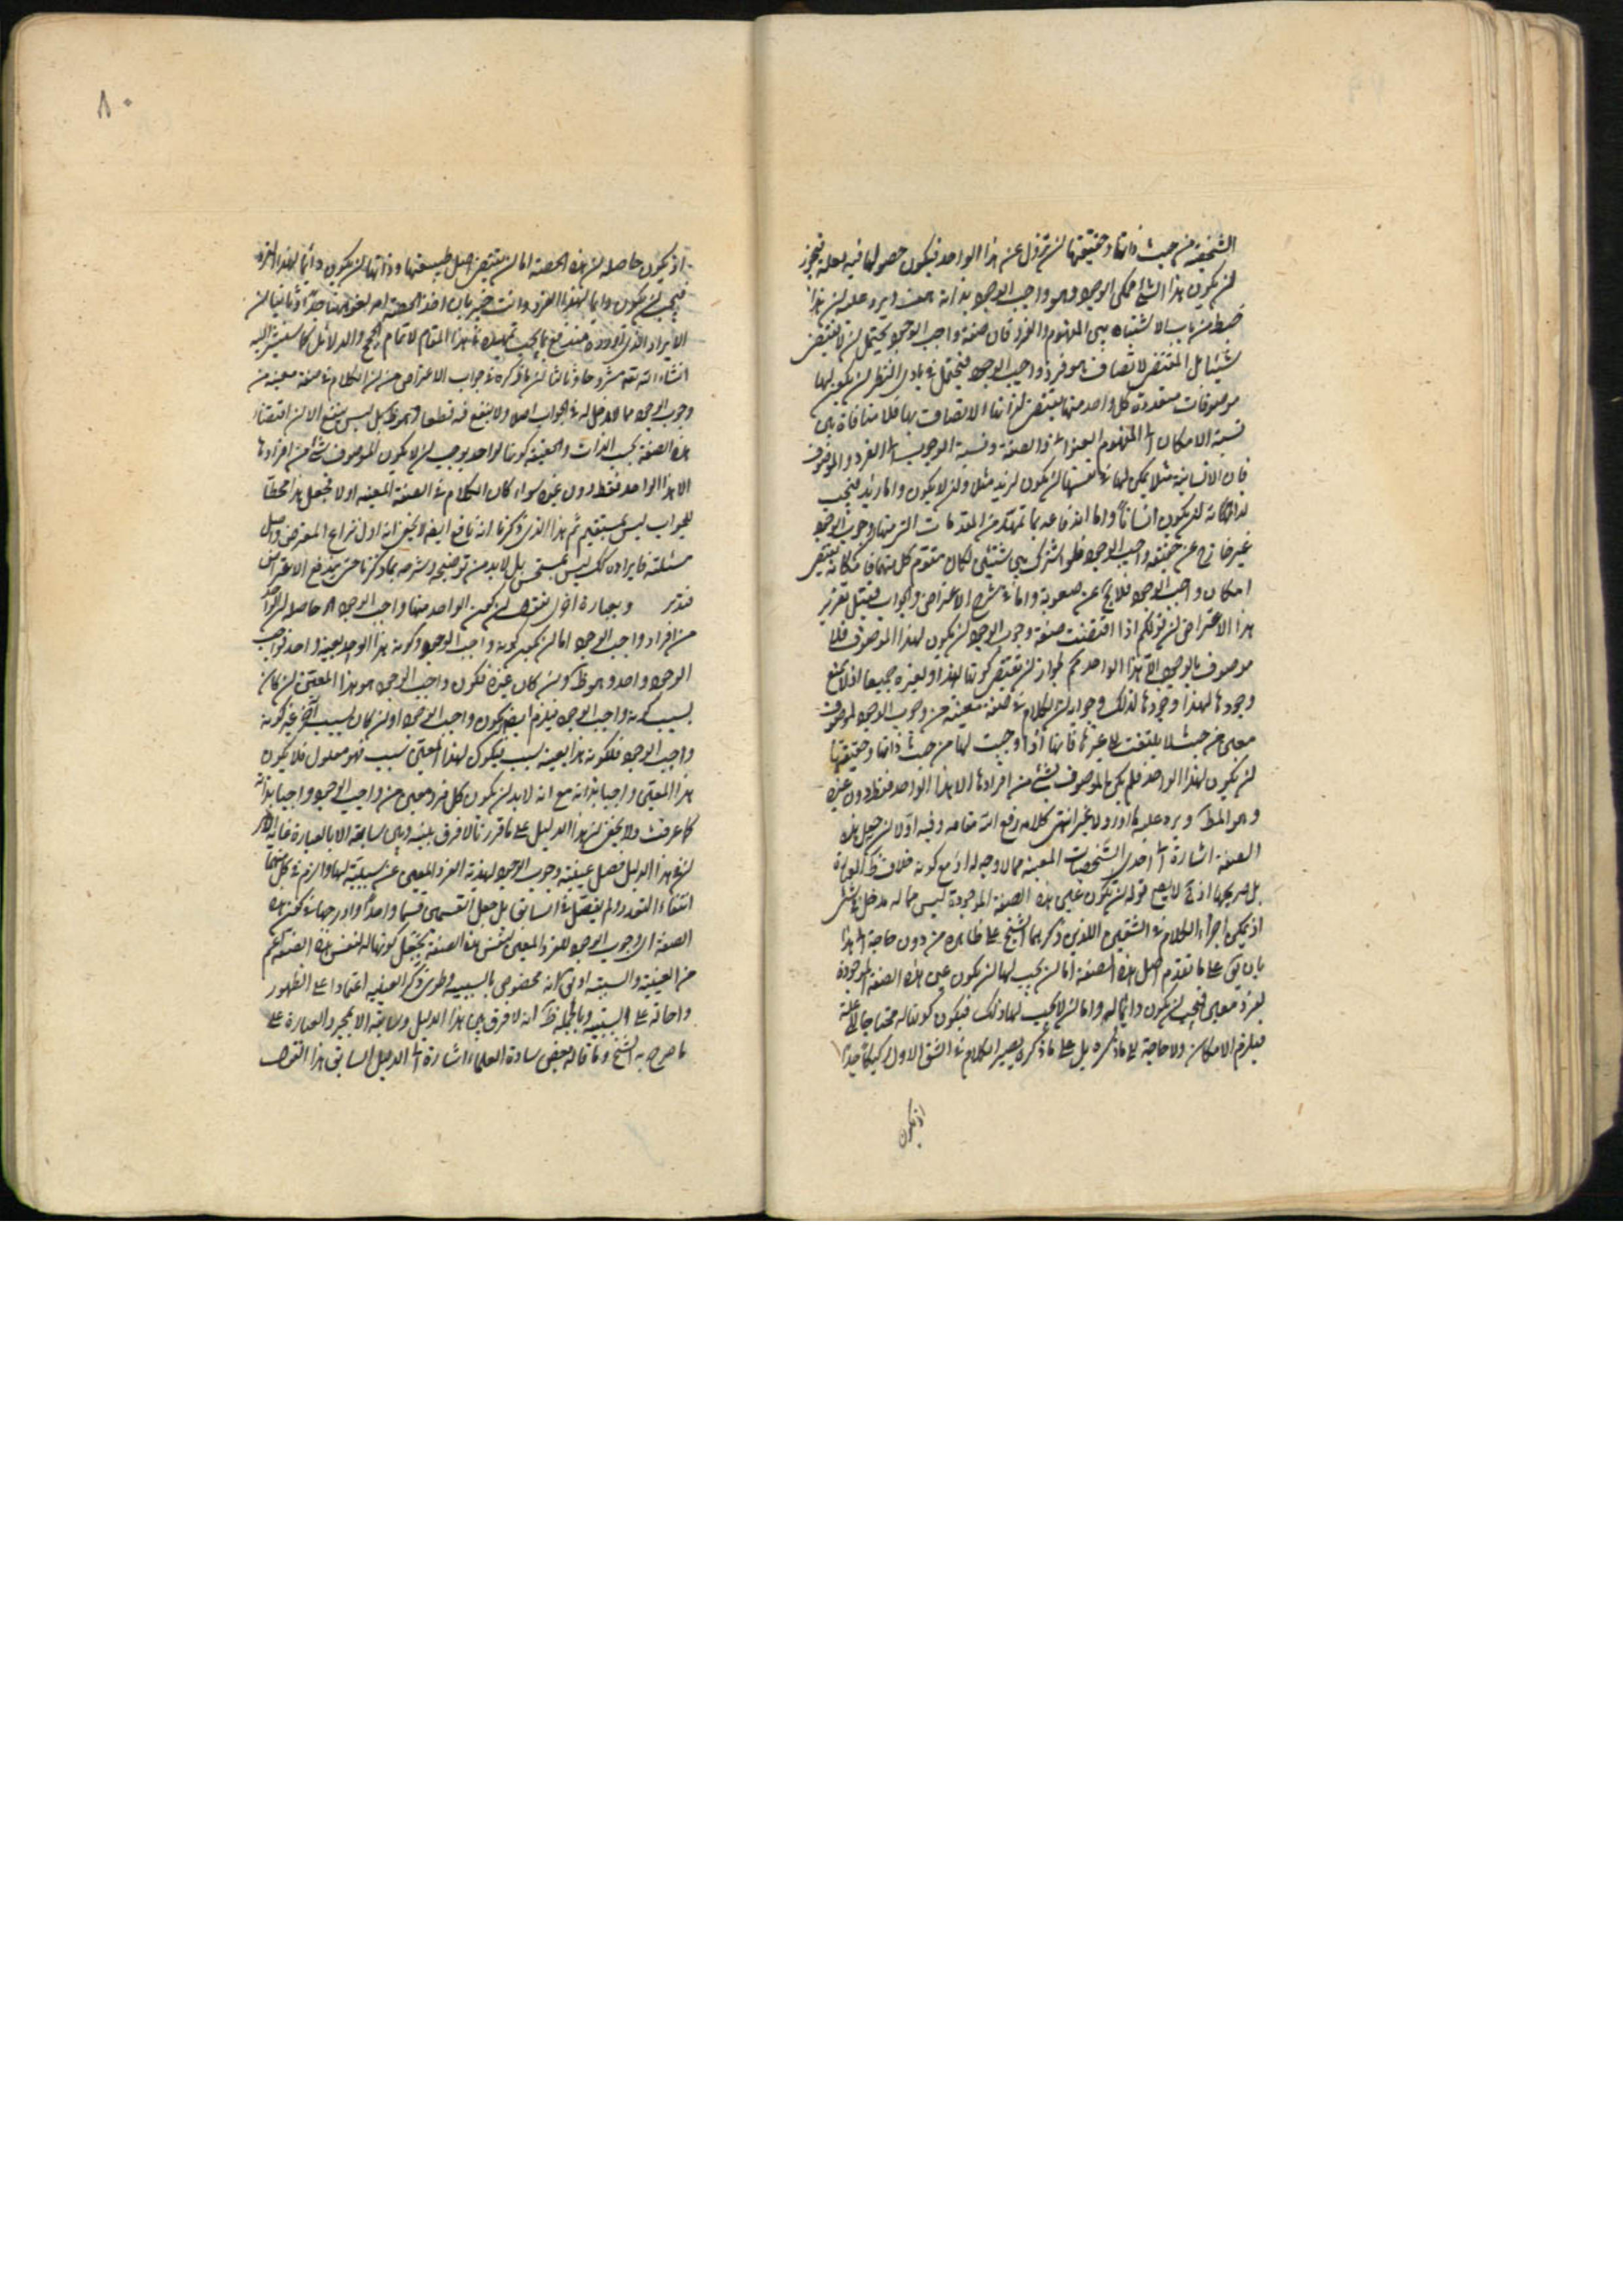 الشخصية من حيث ذاتها وحقيقتها لن تزول عن هذا الواحد فيكون حصولها فيه لعلة فيجوز
لن يكون هذا الشئ ممكن الوجود وهو واجب الوجود بذاته هف ويرد عليه لن هذا
من باب الاشتباه بين المفهوم والفرد فان صفة واجب الوجود يحتمل لن لا يقتضى
شيئا بل المقتضى لاتصاف هو فرد واجب الوجود فيحتمل فى بادى النظر لن يكون لها
موصوفات متعددة كل واحد منها يقتضى لذاتها الاتصاف بها فلا منافاة بين
نسبة الامكان الى المفهوم العنوانى والصفة ونسبة الوجوب الى الفرد والموصوف
فان الانسانية مثلا يمكن لها فى نفسها لن يكون لزيد مثلا ولن لا يكون واما زيد فيجب
لذاته لن يكون انسانا واما اندفاعه بما تمهد من المقدمات التى منها وجوب الوجود
غير خارج عن حقيقة واجب الوجود فلو اشترك بين شيئين لكان متقوم كل منهما
امكان واجب الوجود فلا يخ عن صعوبة واما شرح الاعتراض والجواب فقيل تقرير
هذا الاعتراض لن قولكم اذا اقتضت صفة وجوب الوجود لن يكون لهذا الموصوف فلا
موصوف بالوجوب الا هذا الواحد مم لجواز لن تقتضى كونها لهذا ولغيره جميعا اذ لا يمنع
وجودها لهذا وجودها لذلك وجوابه لن الكلام فى صفة معينة من وجوب الوجود لموصوف
معين من حيث لا يلتفت الى غيرها فانها اذا وجبت لها من حيث ذاتها وحقيقتها
لن يكون لهذا الواحد فلم يكن الموصوف بشئ من افرادها الا هذا الواحد فقط دون غيره
وهو المط ويرد عليه ما اورد ولا غير انتهى كلامه رفع الله مقامه وفيه اولا لن جعل هذه
الصفة اشارة الى احدى الشخصيات المعينة مما لا وجه له اذ مع كونه خلاف ظ العبارة
بل صريحها اذ ح لا يصح قوله لن يكون عين هذه الصفة الموجودة ليس مما له مدخل
اذ يمكن اجراء الكلام فى الشقين اللذين ذكرهما الشيخ على ظاهره من دون حاجة الى هذا
بان يق على ما تقدم اصل هذه الصفة اما لن يجب لها لن يكون عين هذه الصفة الموجودة
لفرد معين فيجب لن يكون دائما له واما لن لا يجب لها ذلك فيكون كونها له محتاجا الى علة
فيلزم الامكان ولا حاجة الى ما ذكره بل على ما ذكره يصير الكلام فى الشق الاول ركيكا جدا
اذ يكون
٨٠
اذ يكون حاصله لن هذه الحصة اما لن يقتضى اصل طبيعتها وذاتها لن يكون دائما لهذا الفرد
فيجب لن يكون دائما لهذا الفرد وانت خبير بان اخذ الحصة امر لغو ههنا جدا وثانيا لن
الايراد الذى اورده مندفع بما يجب تمهيده فى هذا المقام لاتمام الحجج والدلائل كما سنشير اليه
انشاء الله تعه مشروحا وثالثا لن ما ذكره فى جواب الاعتراض من لن الكلام فى صفة معينة من
وجوب الوجود مما لا مدخل له فى الجواب اصلا ولا ينفع فيه قطعا بل ليس ينفع الا لن اقتضاء
هذه الصفة بحسب الذات والحقيقة كونها لواحد يوجب لن لا يكون الموصوف بشئ من افرادها
الا هذا الواحد فقط دون غيره سواء كان الكلام فى الصفة المعينة اولا فجعل هذا محطا
للجواب ليس بمستقيم ثم هذا الذى ذكرنا انه نافع ايضا لا يخفى انه اول نزاع المعترض واصل
مسئلته فايراده كك ليس بمستحسن بل لابد من توضيحه وشرحه بما ذكرنا حتى يندفع الاعتراض
فتدبر وبعبارة اخرى نقول لن كون الواحد منها واجب الوجود حاصله لن
من افراد واجب الوجود اما لن يكون كونه واجب الوجود وكونه هذا الواحد بعينه واحدا فواجب
الوجود واحد وهو ظ ولن كان غيره فكون واجب الوجود هو هذا المعين لن كان
بسبب كونه واجب الوجود فيلزم ايضا لن يكون واجب الوجود ولن كان لسبب آخر غير كونه
واجب الوجود فلكونه هذا بعينه سبب فيكون لهذا المعين سبب فهو معلول فلا يكون
هذا المعين واجبا بذاته مع انه لابد لن يكون كل فرد معين من واجب الوجود واجبا بذاته
كما عرفت ولا يخفى لن هذا الدليل على ما قررنا لا فرق بينه وبين سابقه الا بالعبارة غاية الامر
لن فى هذا الدليل فصل عينية وجوب الوجود لهذية الفرد المعين عن سببية لها والزم فى كل منهما
انتفاء التعدد ولم يفصل فى السابق بل جعل القسمين قسما واحدا وادرجها فى كون هذه
الصفة اى وجوب الوجود للفرد المعين لنفس هذه الصفة فيحتمل كونها له لنفس هذه الصفة اعم
من العينية والسببية او ق انه مخصوص بالسببية وطوى ذكر العينية اعتمادا على الظهور
واحالة على السببية وبالجملة ظ انه لا فرق بين هذا الدليل وسابقه الا بمجرد العبارة على
ما صرح به الشيخ وما قاله بعض سادة العلماء اشارة الى الدليل السابق هذا القول